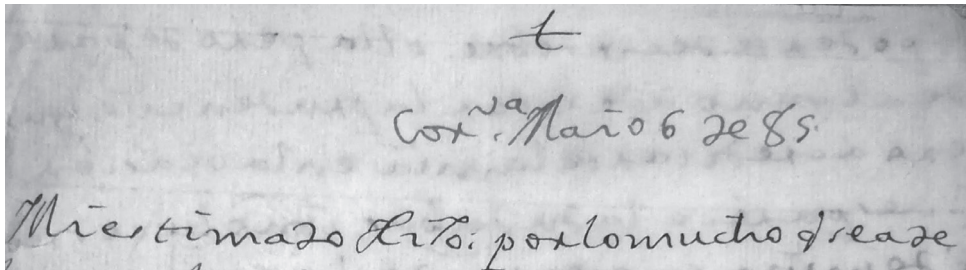 t
Cor.ᵛᵃ Maio 6 de 85.
Mi estimado Hito: por lo mucho